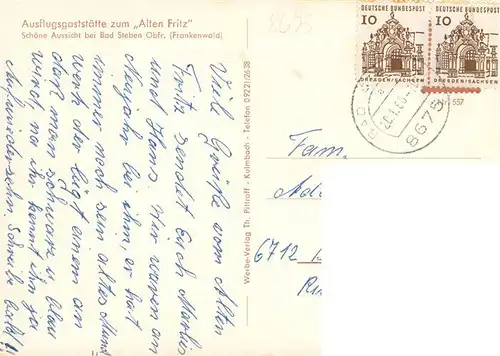 Ausflugsgaststätte zum „Alten Fritz"
Schöne Aussicht bei Bad Steben Obfr. (Frankenwald)
8675
DEUTSCHE BUNDESPOST
10
DRESDEN/SACHSEN
DEUTSCHE BUNDESPOST
10
DRESDEN/SACHSEN
Nr. 557
BAD
8675
Werbe-Verlag Th. Pittroff - Kulmbach - Telefon 09221/2638
Viele Grüße vom Alten
Fritz sendet Euch Martin
und Hans. Wir waren an
Neujahr bei ihm, er hat
immer noch sein altes Mund
werk der lügt einem an
daß man schwarz u. blau
wird, na ihr kennt ihn ja
Aufwiedersehn. Schreibe bald!
Fam.
6712